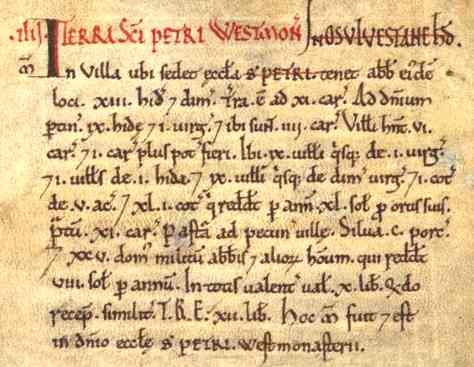 .iiij. TERRA SC̄I PETRI WESTMON̄. IN OSULVESTANE HĐ.
M̄ In Villa ubi sedet ęccła S' PETRI. tenet abb̄ ei'dē
loci. xiii. hiđ 7 dim̄. Tr̄a. ē ad xi. car̄. Ad dn̄ium
ptin̄. ix. hidę 7 i. virg̃. 7 ibi sunt. iiij. car̄. Villi hn̄t. vi.
car̄. 7 i. car̄ plus pot̃ fieri. Ibi. ix. uilłi q̄sq; de. i. virg̃.
7 i. uilłs de. i. hida. 7 ix. uilłi q̄sq; de dim̄ virg̃. 7 i. cot̃
de. v. ac̄. 7 xl. i. cot̃ q̇ reddt̄ p ann̄. xl. soł p ortis suis.
P̃tū. xi. car̄. Pasťa ad pecun̄ uillę. Silua. c. porc̄.
7 xxv. dom̄ militū abbis 7 alioꝝ hoūm. qui reddt̄
viii. soł p annū. In totis ualent̄ uał. x. lib̄. Qdo
recep̄. similit̄. T. R. E. xii. lib̄. Hoc m̄ fuit 7 est
in dn̄io ęccłę S' PETRI. westmonasterii.